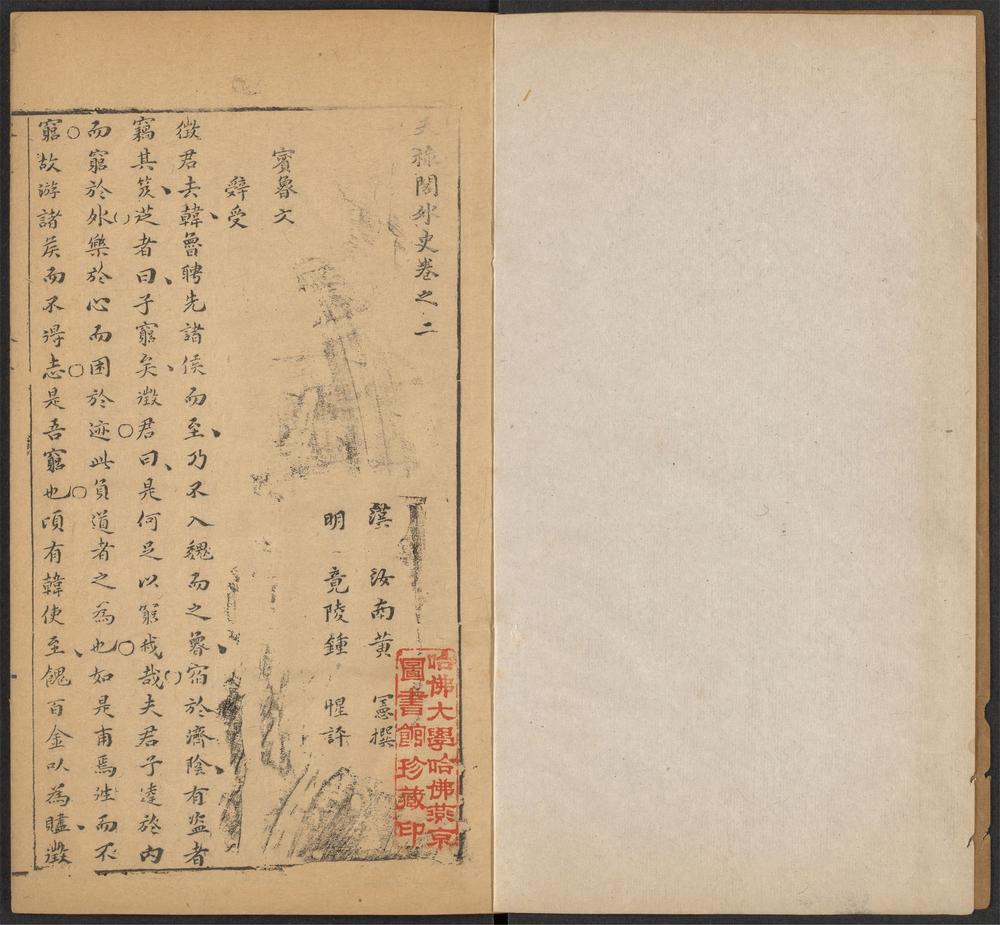 天祿閣外史卷之二
漢 汝南黃 憲撰
明 竟陵鍾 惺評
賓魯文
辭受
徵君去韓魯聘先諸侯而至乃不入魏而之魯宿於濟陰有盜者
竊其笈從者曰子窮矣徵君曰是何足以窮我哉夫君子達於內
而窮於外樂於心而困於迹此負道者之為也如是甫焉往而不
窮故游諸侯而不得志是吾窮也頃有韓使至餽百金以為贐徵
哈佛大學哈佛燕京
圖書館珍藏印